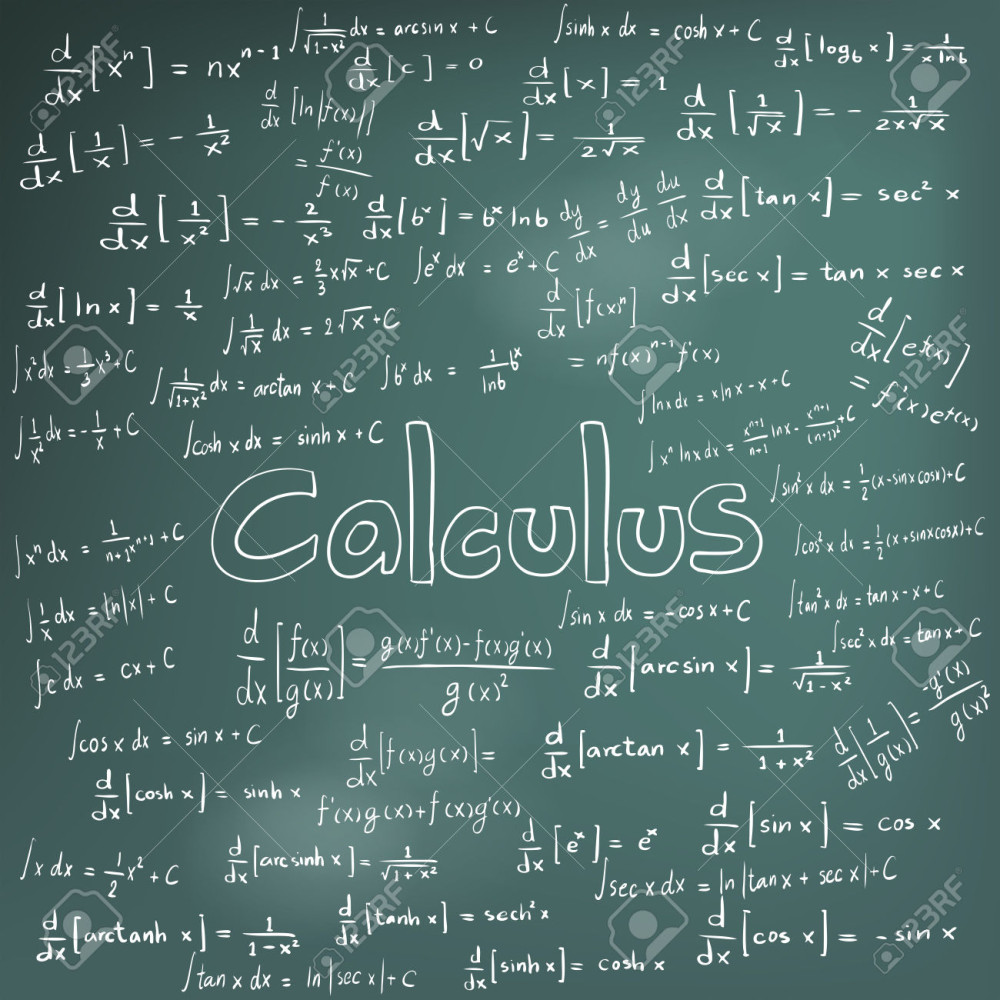 d/dx [xⁿ] = nxⁿ⁻¹
∫ 1/√(1-x²) dx = arcsin x + C
∫sinh x dx = cosh x + C
d/dx [log_b x] = 1/(x ln b)
d/dx [c] = 0
d/dx [x] = 1
d/dx [ln|f(x)|]
= f'(x)/f(x)
d/dx [1/x] = - 1/x²
d/dx [√x] = 1/(2√x)
d/dx [1/√x] = - 1/(2x√x)
d/dx [1/x²] = - 2/x³
d/dx [bˣ] = bˣ ln b
dy/dx = dy/du du/dx
d/dx [tan x] = sec² x
∫√x dx = 2/3 x√x + C
∫eˣ dx = eˣ + C
d/dx [sec x] = tan x sec x
d/dx [ln x] = 1/x
∫ 1/√x dx = 2√x + C
d/dx [f(x)ⁿ]
= nf(x)ⁿ⁻¹f'(x)
d/dx [ef(x)]
= f'(x)ef(x)
∫x²dx = 1/3 x³ + C
∫ 1/√(1+x²) dx = arctan x + C
∫bˣ dx = 1/ln b bˣ
∫ln x dx = x ln x - x + C
∫ 1/x² dx = - 1/x + C
∫cosh x dx = sinh x + C
∫xⁿ ln x dx = xⁿ⁺¹/n+1 ln x - xⁿ⁺¹/(n+1)² + C
∫sin² x dx = 1/2 (x - sin x cos x) + C
Calculus
∫xⁿ dx = 1/n+1 xⁿ⁺¹ + C
∫cos² x dx = 1/2 (x + sin x cos x) + C
∫ 1/x dx = ln|x| + C
∫sin x dx = - cos x + C
∫tan² x dx = tan x - x + C
∫sec² x dx = tan x + C
∫c dx = cx + C
d/dx [f(x)/g(x)] = g(x)f'(x)-f(x)g'(x)/g(x)²
d/dx [arcsin x] = 1/√(1-x²)
d/dx [1/g(x)] = -g'(x)/g(x)²
∫cos x dx = sin x + C
d/dx [f(x)g(x)] =
f'(x)g(x)+f(x)g'(x)
d/dx [arctan x] = 1/(1+x²)
d/dx [cosh x] = sinh x
d/dx [eˣ] = eˣ
d/dx [sin x] = cos x
∫x dx = 1/2 x² + C
d/dx [arcsinh x] = 1/√(1+x²)
∫sec x dx = ln|tan x + sec x| + C
d/dx [arctanh x] = 1/(1-x²)
d/dx [tanh x] = sech² x
d/dx [cos x] = - sin x
∫tan x dx = ln|sec x| + C
d/dx [sinh x] = cosh x
123RF